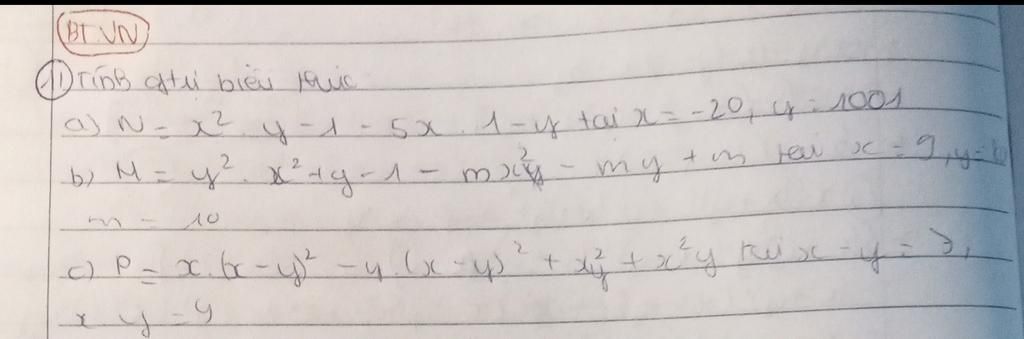 BT.VN
1) Tính gtrị biểu thức
a) N = x² . y - 1 - 5x . 1 - y tại x = -20, y = 1001
b) M = y² . x² + y - 1 - mx²y - my + m tại x = 9, y =
m = 10
c) P = x.(x - y)² - y.(x - y)² + xy² + x²y tại x - y =
x y = 9